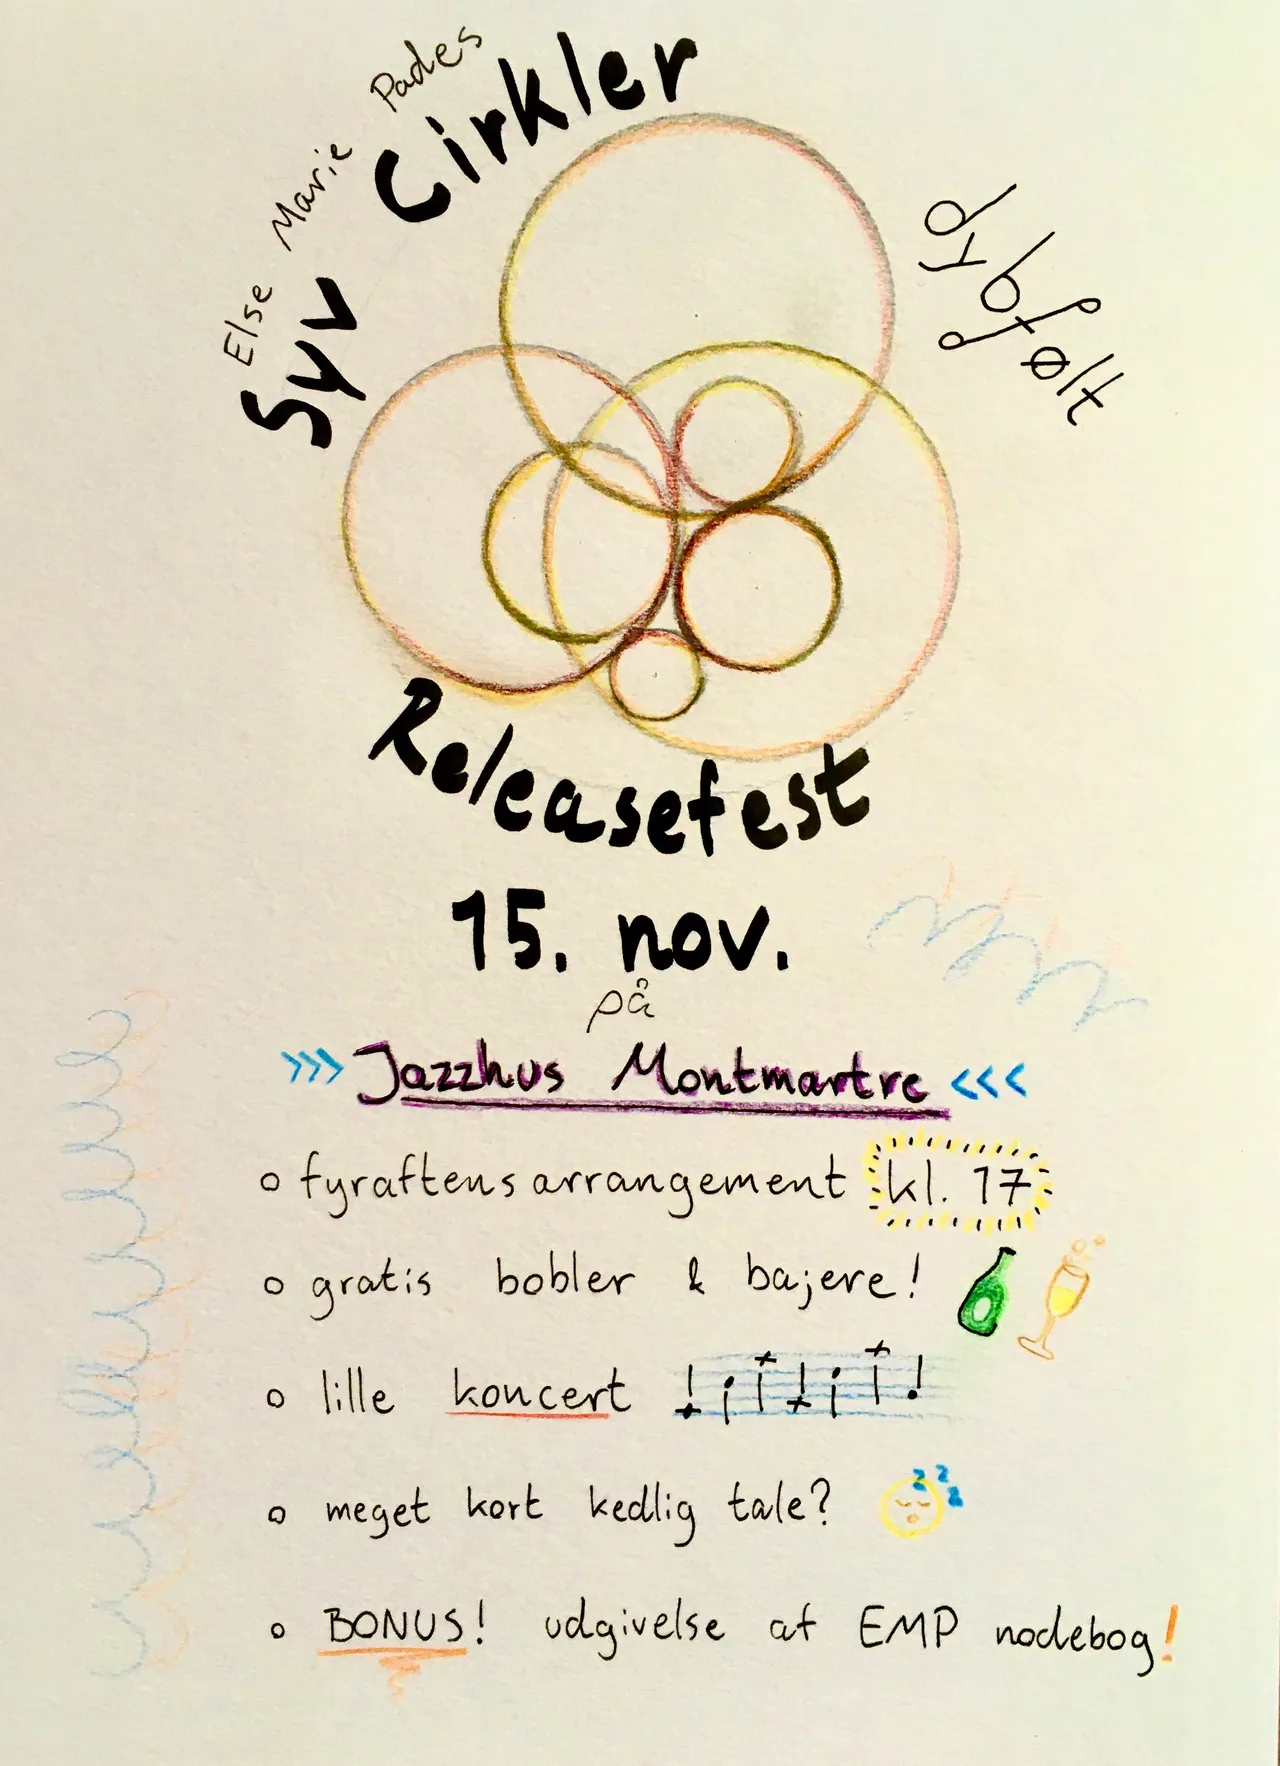 Else Marie Pades
Syv Cirkler
dybfølt
Releasefest
15. nov.
på
>>> Jazzhus Montmartre <<<
o fyraftensarrangement kl. 17
o gratis bobler & bajere!
o lille koncert
o meget kort kedlig tale? z z z
o BONUS! udgivelse af EMP nodebog!